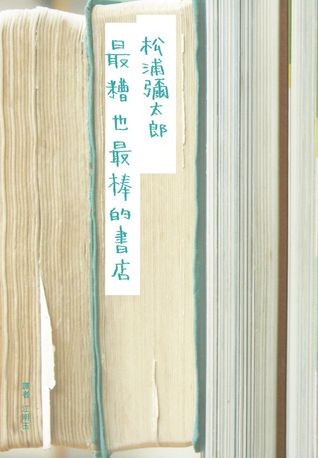 松浦彌太郎
最糟也最棒的書店
譯者 江明玉